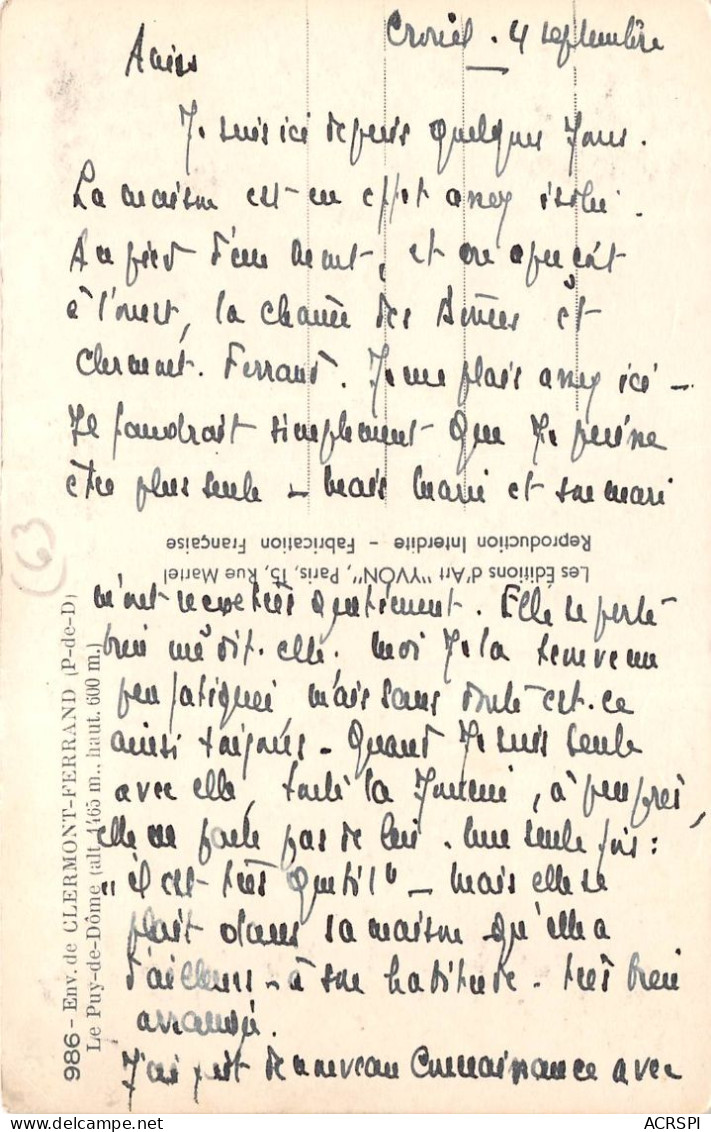 Crouël . 4 septembre
Anies
Je suis ici depuis quelques jours .
La maison est en effet assez isolée .
Au pied d'un mont , et on aperçoit
à l'ouest , la chaîne des Dômes et
Clermont - Ferrand . Je me plais assez ici -
Il faudrait simplement que je puisse
être plus seule - mais Marie et son mari
Les Éditions d'Art "YVON", Paris, 15, Rue Martel
Reproduction Interdite - Fabrication Française
m'ont reçue très gentiment . Elle se porte
bien me dit-elle . Moi je la trouve un
peu fatiguée mais sans doute est-ce
ainsi toujours - Quand je suis seule
avec elle , toute la journée , à peu près ,
elle ne parle pas de lui . Une seule fois :
" il est très gentil " - Mais elle se
plait dans sa maison qu'elle a
d'ailleurs - à son habitude - très bien
arrangée .
J'ai fait de nouveau connaissance avec
986 - Env. de CLERMONT-FERRAND (P-de-D)
Le Puy-de-Dôme (alt. 1465 m., haut. 600 m.)
63
ACRSPI